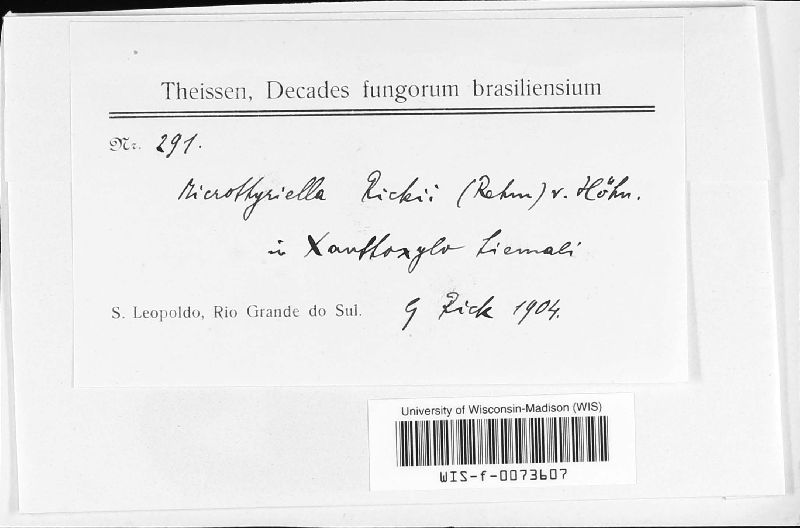 Theissen, Decades fungorum brasiliensium
Nr. 291.
Microthyriella Rickii (Rehm) v. Höhn.
in Xanthoxylo hiemali
S. Leopoldo, Rio Grande do Sul. Rick 1904.
University of Wisconsin-Madison (WIS)
WIS-f-0073607